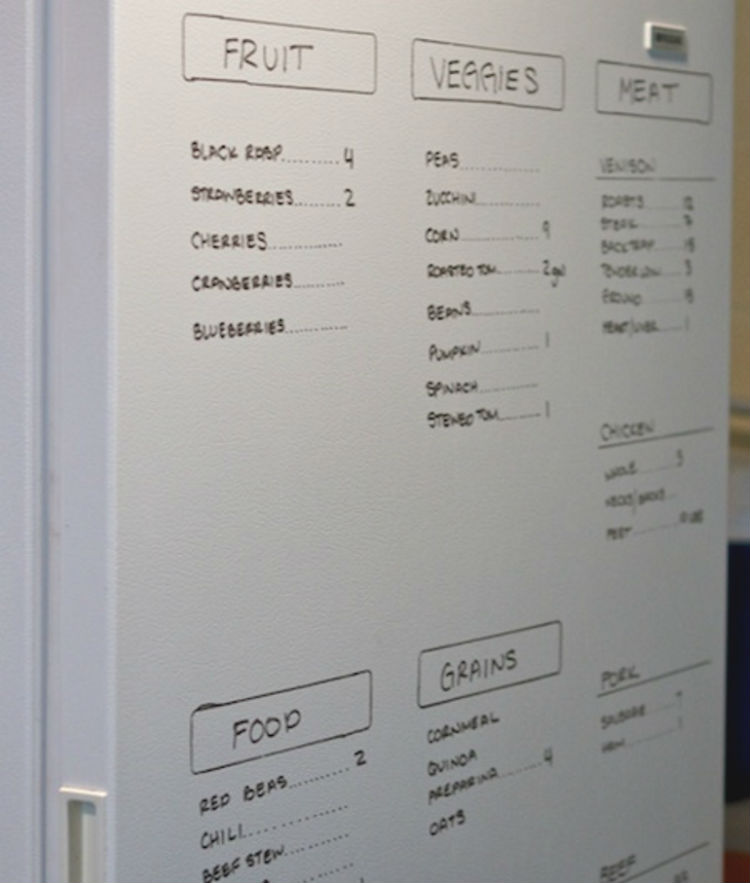 FRUIT
BLACK RASP.......... 4
STRAWBERRIES........ 2
CHERRIES..............
CRANBERRIES..........
BLUEBERRIES............
VEGGIES
PEAS..................
ZUCCHINI..............
CORN............... 9
ROASTED TOM......... 2 gal
BEANS................
PUMPKIN............. 1
SPINACH.............
STEWED TOM......... 1
MEAT
VENISON
ROASTS........ 12
STEAK......... 7
BACKSTRAP
TENDERLOIN..... 3
GROUND
HEART/LIVER..... 1
CHICKEN
WHOLE........ 3
NECKS/BACKS....
FEET
FOOD
RED BEAS............ 2
CHILI................
BEEF STEW............
GRAINS
CORNMEAL
QUINOA
PREPARINA......... 4
OATS
PORK
SAUSAGE
HAM
BEEF